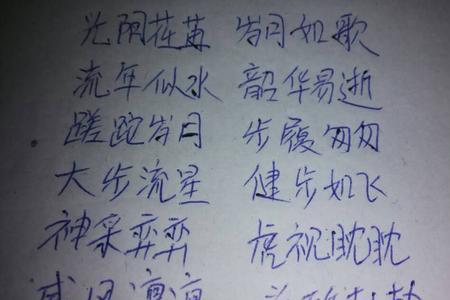 光阴荏苒 岁月如歌
流年似水 韶华易逝
蹉跎岁月 步履匆匆
大步流星 健步如飞
神采弈弈 虎视眈眈
威风凛凛